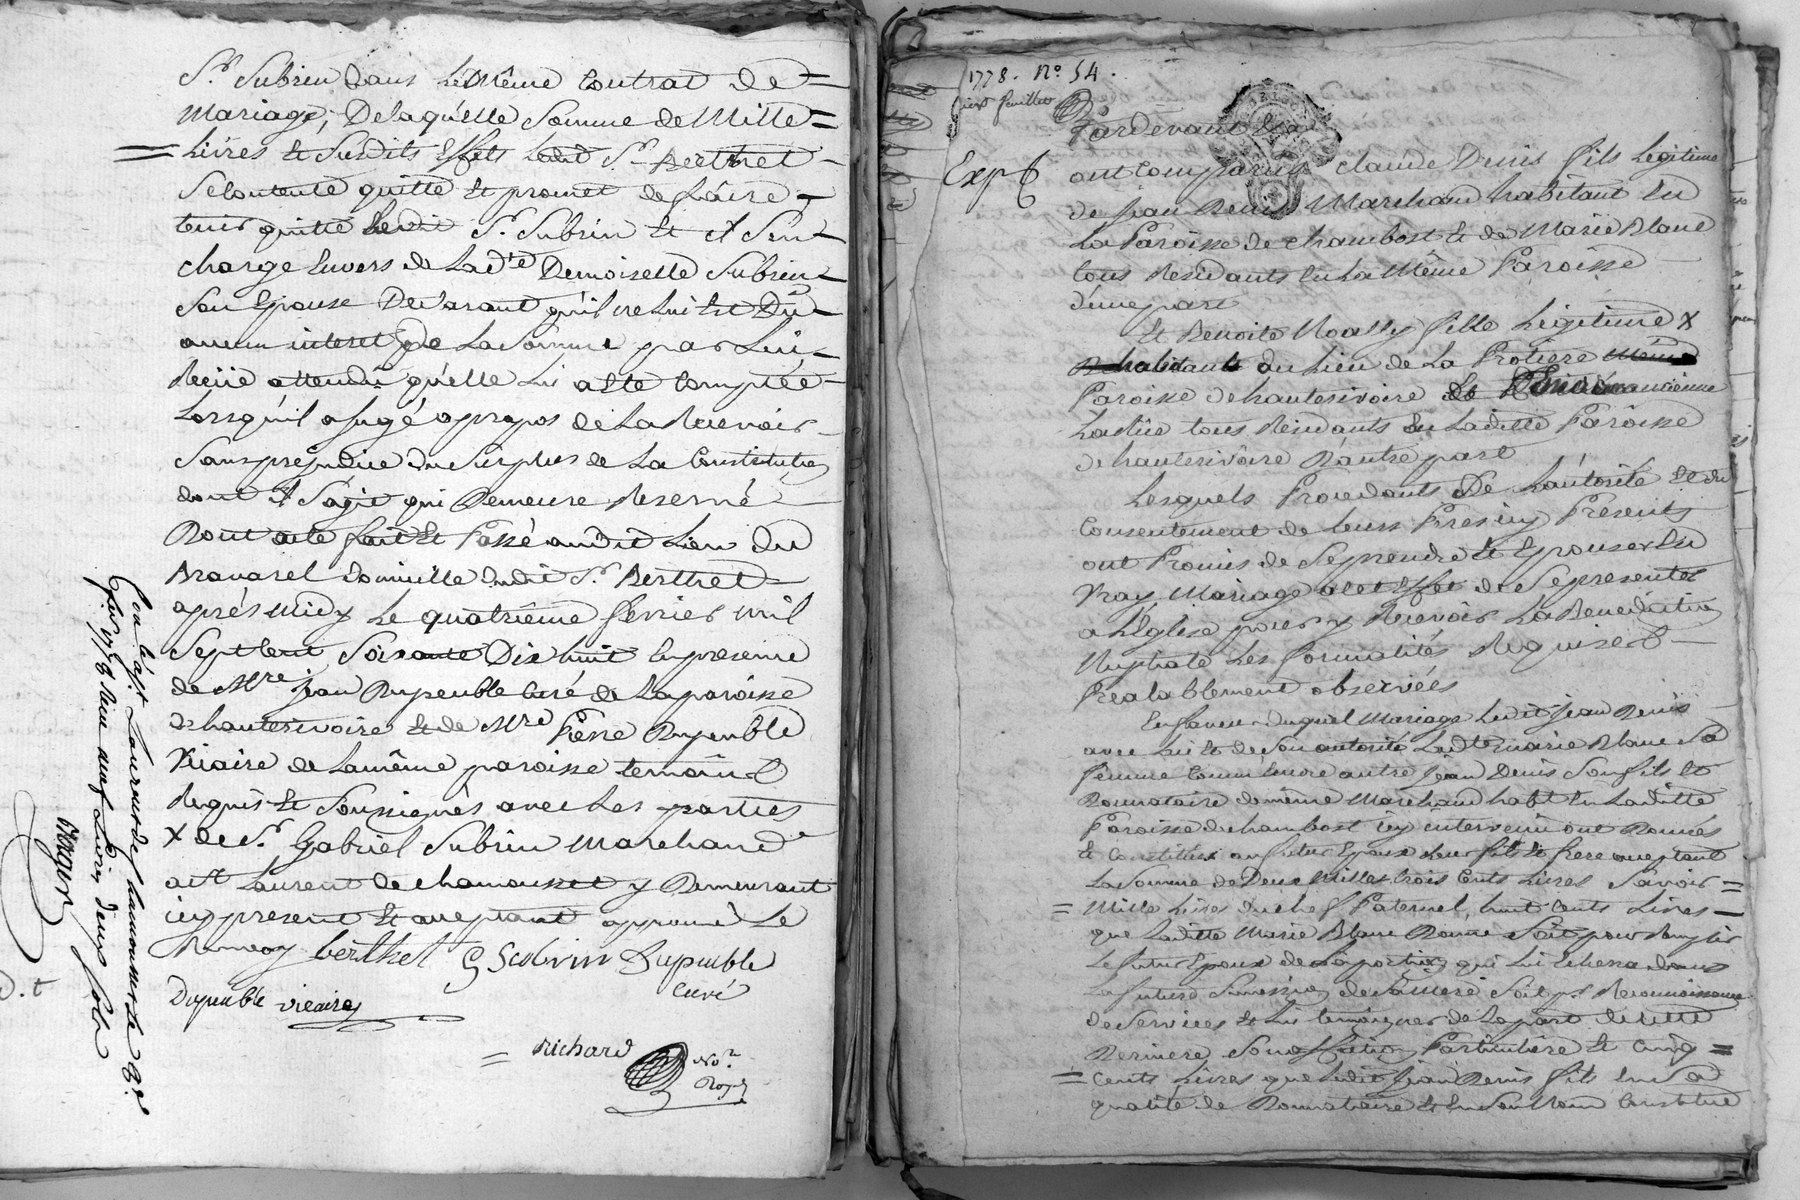 Sr. Subrin dans le Même Contrat de
Mariage; De laquelle Somme de Mille
Livres et Susdits Effets ledit Sr. Berthet
Se Contente quitte et promet de faire
tenir quitte ledit Sr. Subrin et il S'en
charge Envers de Ladte Demoiselle Subrin
Son Epouse Declarant qu'il ne lui Est Dû
aucun interet de La Somme par Lui
Reçüe attendu qu'elle lui a Eté Comptée
Lorsqu'il a jugé apropos de La Recevoir
Sans prejudice du Surplus de La Constitution
dont il S'agit qui Demeure Reservé
Dont acte fait et Passé audit Lieu du
Bravarel domicille dudit Sr. Berthet
après Midy Le quatrième fevrier mil
Sept Cent Soixante Dix huit En presence
de Mre jean Dupeuble Curé de La paroisse
de hauterivoire et de Mre Pierre Dupeuble
Vicaire de La même paroisse temoins
Requis et Soussignés avec Les parties
x de Sr. Gabriel Subrin Marchand
a St Laurent de Chamousset y Demeurant
icy present et aceptant approuvé Le
Renvoy berthet G Subrin Dupeuble
Curé
Dupeuble vicaire
Richard
Nore
Royal
1778. No. 54.
Pardevant
Exp
ont Comparu claude Denis fils Legitime
de jean Denis Marchand habitant En
La Paroisse de chambost et de Marie Blanc
tous Residants En La Même Paroisse
d'une part
Et Benoite Noally fille Legitime x
habitants du Lieu de La Protiere
Paroisse de hauterivoire
Ladte tous Residants En Laditte Paroisse
de hauterivoire D'autre part
Lesquels Procedants De L'autorité et du
Consentement de leurs Pres icy Presents
ont Promis de Se prendre et Epouser En
Vray Mariage a cet Effet de Se presenter
a L'Eglise pour y Recevoir La Benediction
Nuptiale Les formalités Requises
Prealablement observées
En faveur duquel Mariage Ledit jean Denis
avec Lui et de Son autorité Ladte marie Blanc Sa
femme Comm' Encore autre jean Denis Son fils et
Donnataire de même Marchand habt En Laditte
Paroisse de chambost icy intervenu ont Donnés
et Constitués au futur Epoux leur fils et frere aceptant
La Somme de Deux Mille trois Cents Livres Savoir
Mille Livres du chef Paternel, huit Cents Livres
que Laditte Marie Blanc Donne Soit pour Remplir
Le futur Epoux de La portion qui Lui Echerra dans
La future Succession de Sa Mere Soit pr. Reconnoissance
de Services et Lui temoigner de La part de Cette
Derniere Son affection Particuliere et Cinq
Cents Livres que Ledit jean Denis fils En Sa
qualité de Donnataire et En Son Nom Constitue